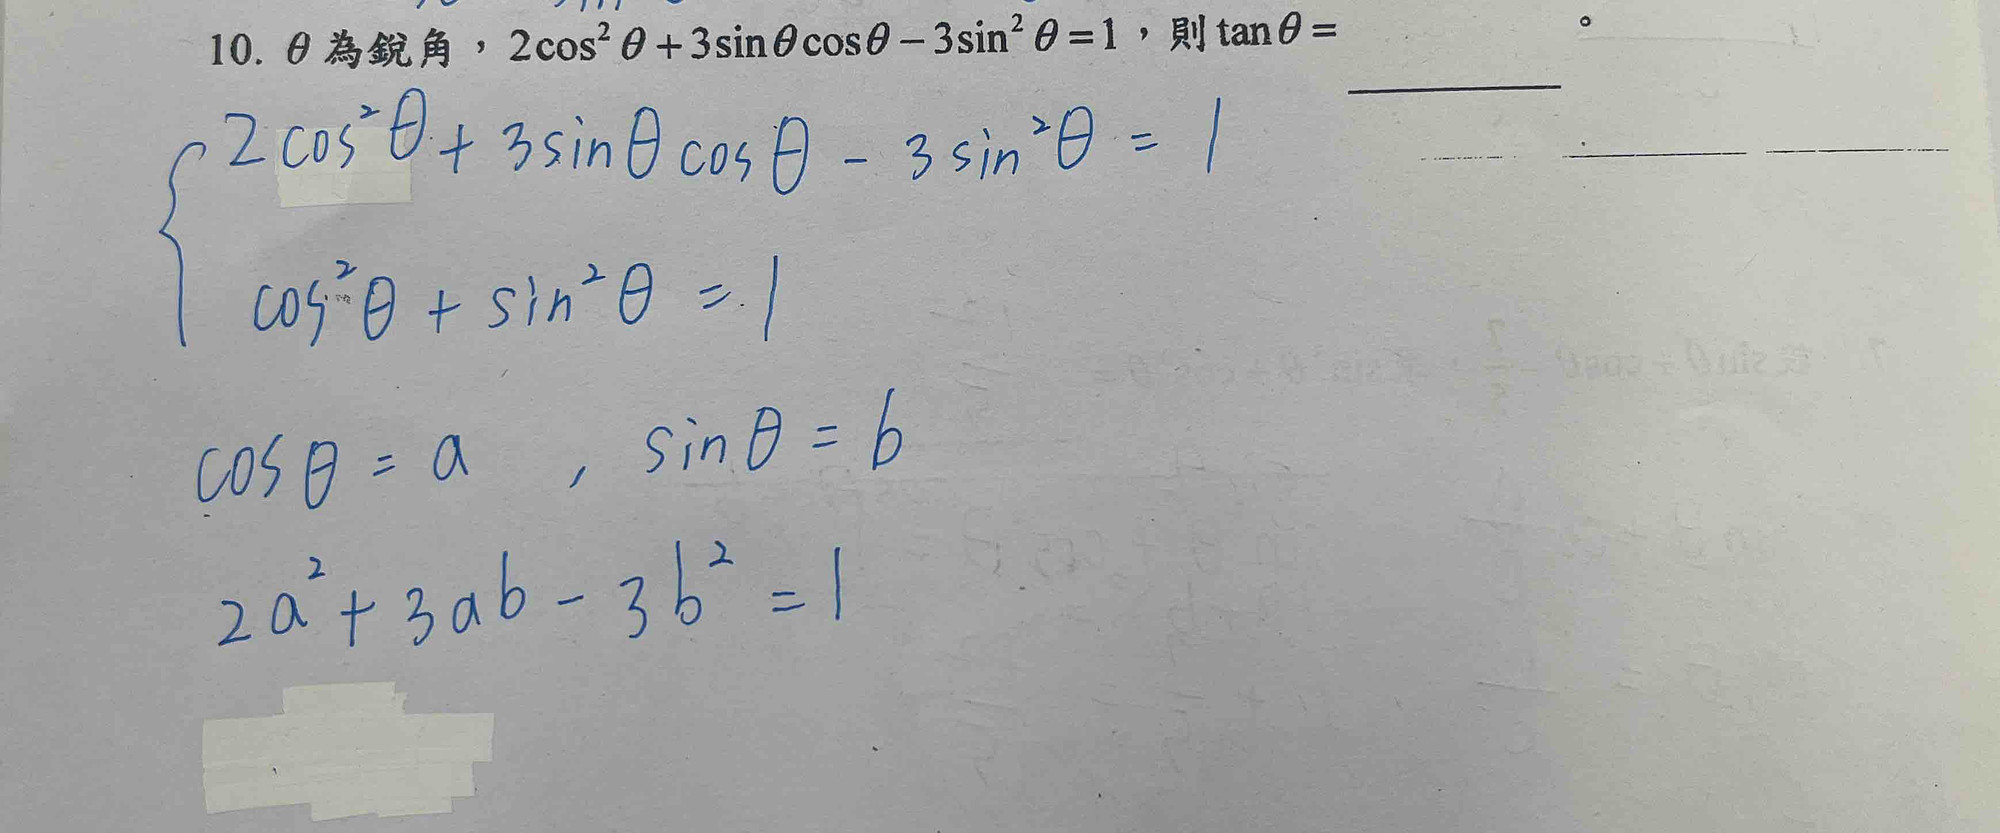 10. θ 為銳角，2cos² θ + 3sinθcosθ − 3sin² θ = 1，則 tanθ = ________。
2 cos²θ + 3 sinθ cosθ − 3 sin²θ = 1
cos²θ + sin²θ = 1
cosθ = a , sinθ = b
2a² + 3ab − 3b² = 1